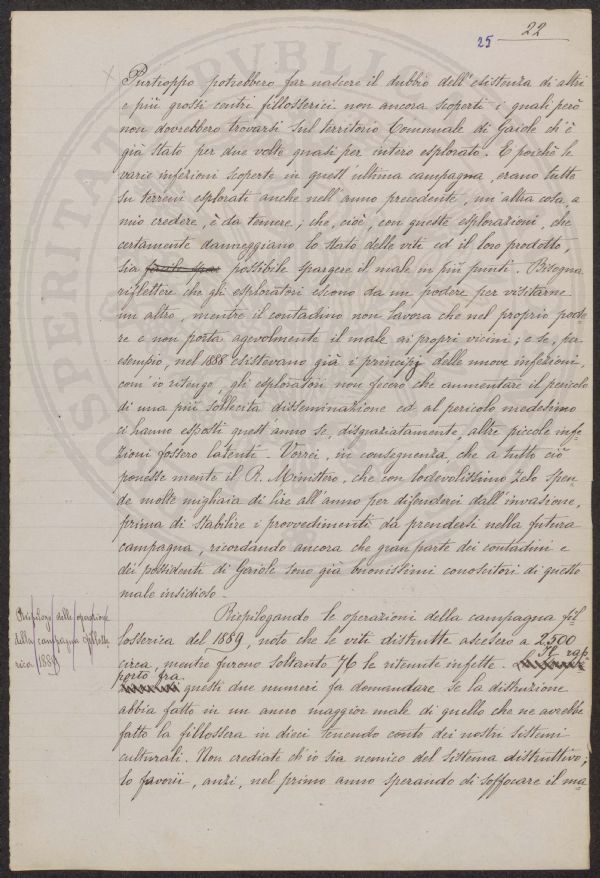 22
25
Purtroppo potrebbero far nascere il dubbio dell'esistenza di altri
e più grossi centri fillosserici non ancora scoperti i quali però
non dovrebbero trovarsi sul territorio Comunale di Gaiole ch'è
già stato per due volte quasi per intero esplorato. E poichè le
varie infezioni scoperte in quest'ultima campagna, erano tutte
su terreni esplorati anche nell'anno precedente, un'altra cosa, a
mio credere, è da temere; che, cioè, con queste esplorazioni, che
certamente danneggiano lo stato delle viti ed il loro prodotto,
sia possibile spargere il male in più punti. Bisogna
riflettere che gli esploratori escono da un podere per visitarne
un altro, mentre il contadino non lavora che nel proprio pode-
re e non porta agevolmente il male ai propri vicini; e se, per
esempio, nel 1888 esistevano già i principj delle nuove infezioni,
com'io ritengo, gli esploratori non fecero che aumentare il pericolo
di una più sollecita disseminazione ed al pericolo medesimo
ci hanno esposti quest'anno se, disgraziatamente, altre piccole infe-
zioni fossero latenti. Vorrei, in conseguenza, che a tutto ciò
ponesse mente il R. Ministero, che con lodevolissimo zelo spen
de molte migliaia di lire all'anno per difenderci dall'invasione,
prima di stabilire i provvedimenti da prendersi nella futura
campagna, ricordando ancora che gran parte dei contadini e
dei possidenti di Gaiole sono già buonissimi conoscitori di questo
male insidioso.
Riepilogo delle operazioni
della campagna fillosse
rica 1889
Riepilogando le operazioni della campagna fil
losserica del 1889, noto che le viti distrutte ascesero a 2500
circa, mentre furono soltanto 76 le ritenute infette. Il rap
porto fra
questi due numeri fa domandare se la distruzione
abbia fatto in un anno maggior male di quello che ne avrebbe
fatto la fillossera in dieci tenendo conto dei nostri sistemi
culturali. Non crediate ch'io sia nemico del sistema distruttivo;
lo favorii, anzi, nel primo anno sperando di soffocare il ma=